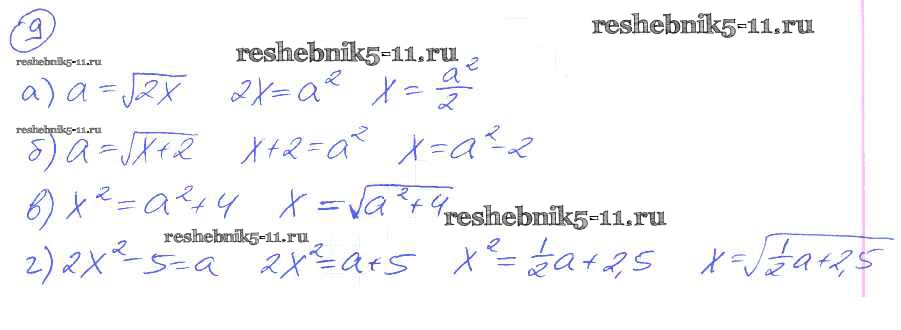 9
reshebnik5-11.ru
reshebnik5-11.ru
reshebnik5-11.ru
а) a = √2x   2x = a²   x = a²/2
reshebnik5-11.ru
б) a = √x+2   x+2 = a²   x = a²-2
в) x² = a²+4   x = √a²+4
reshebnik5-11.ru
reshebnik5-11.ru
г) 2x²-5 = a   2x² = a+5   x² = 1/2 a + 2,5   x = √1/2 a + 2,5